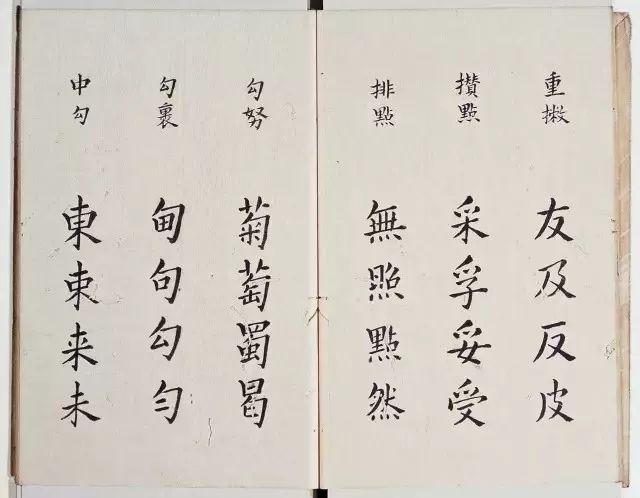 重撇
友及反皮
攢點
采孚妥受
排點
無照點然
勾努
菊萄蜀曷
勾裹
甸句勾勻
中勾
東束来未